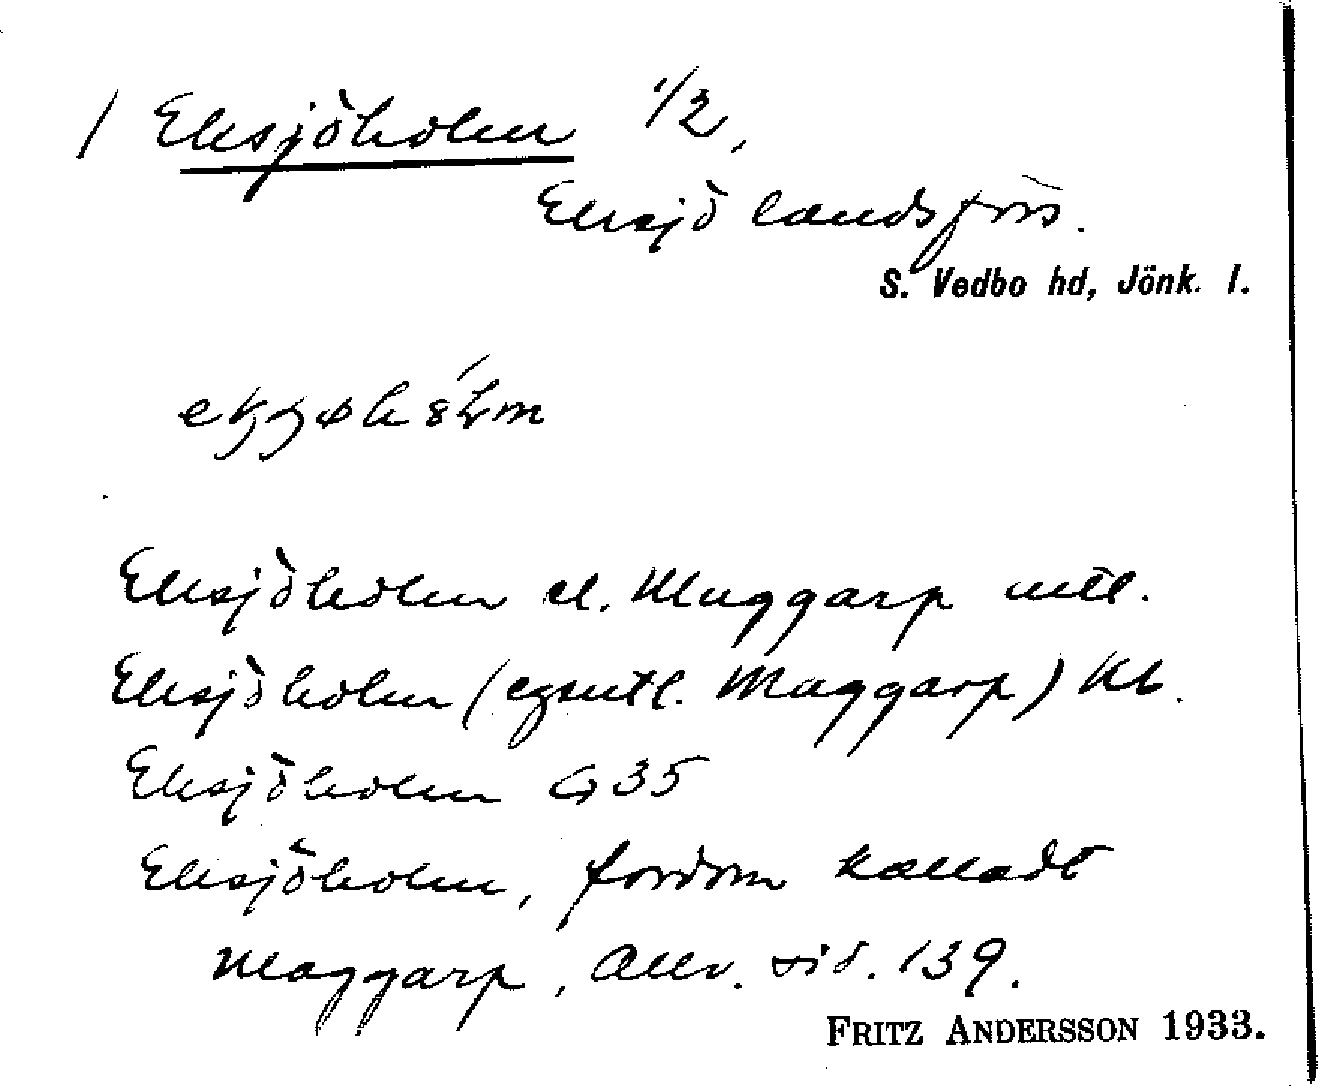 / Eksjöholm 1/2,
Eksjö landsförs.
S. Vedbo hd, Jönk. l.
Eksjöholm el. Muggarp mtl.
Eksjöholm (egentl. Maggarp) Kb.
Eksjöholm G 35
Eksjöholm, fordom kalladt
Maggarp, Allv. sid. 139.
FRITZ ANDERSSON 1933.